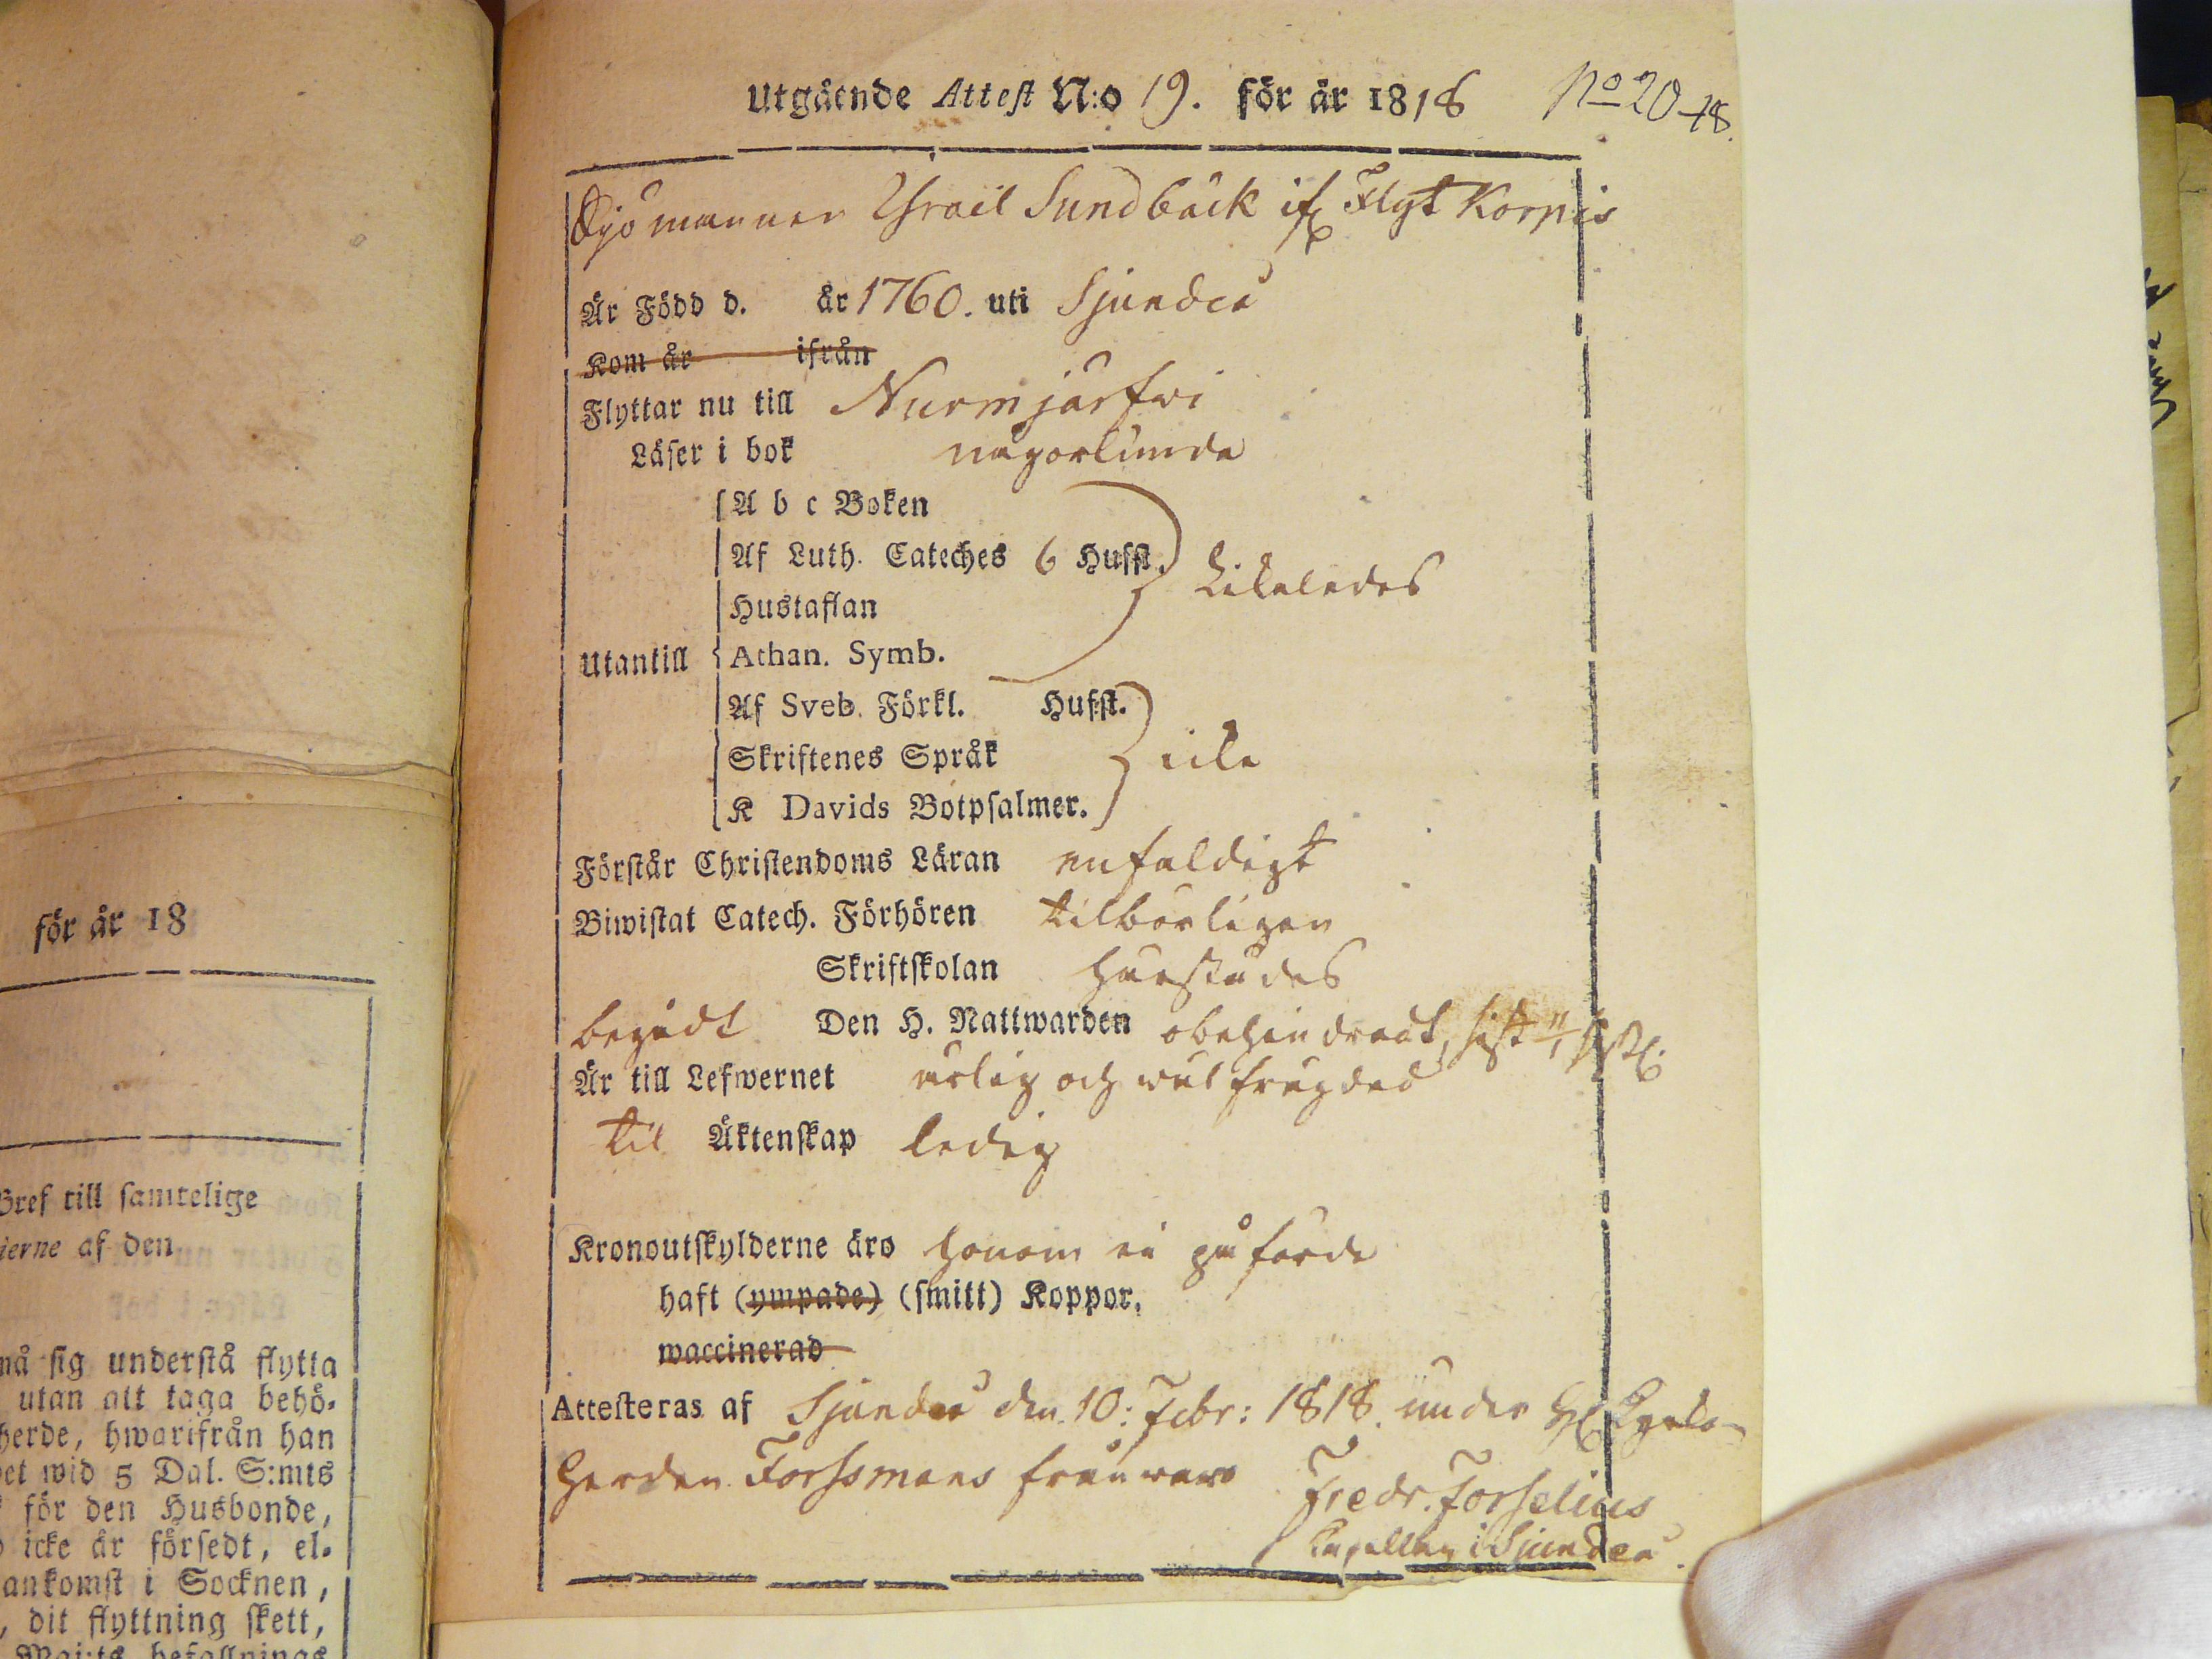 Utgående Attest N:o 19. för år 1818 No 20 18.
Sjömannen Israil Sundbäck ifr Flyt Korpis
Är Född d. år 1760. uti Sjundeå
Kom år ifrån
Flyttar nu till Nurmjärfwi
Läser i bok någorlunda
A b c Boken
Af Luth. Cateches 6 Hufst.
Likaledes
Hustaflan
Utantill Athan. Symb.
Af Sveb. Förkl. Hufst.
Skriftenes Språk icke
K Davids Botpsalmer.
Förstår Christendoms Läran enfaldigt
Biwistat Catech. Förhören tilbörligen
Skriftskolan
begådt Den H. Nattwarden obehindradt, sist
Är till Lefwernet ärlig och wäl frägdad
til Äktenskap ledig
Kronoutskylderne äro honom ei påförde
haft (ympade) (smitt) Koppor.
waccinerad
Attesteras af Sjundeå den 10: Febr: 1818. under H Kyrko-
herden Forssmans frånwaro Fredr. Forselius
Capellan i Sjundeå.
för år 18
Bref till samtelige
jerne af den
må sig understå flytta
utan att taga behö-
herde, hwarifrån han
et wid 5 Dal. S:mts
för den Husbonde,
icke är försedt, el-
ankomst i Socknen,
, dit flyttning skett,
Maj:ts befallnings